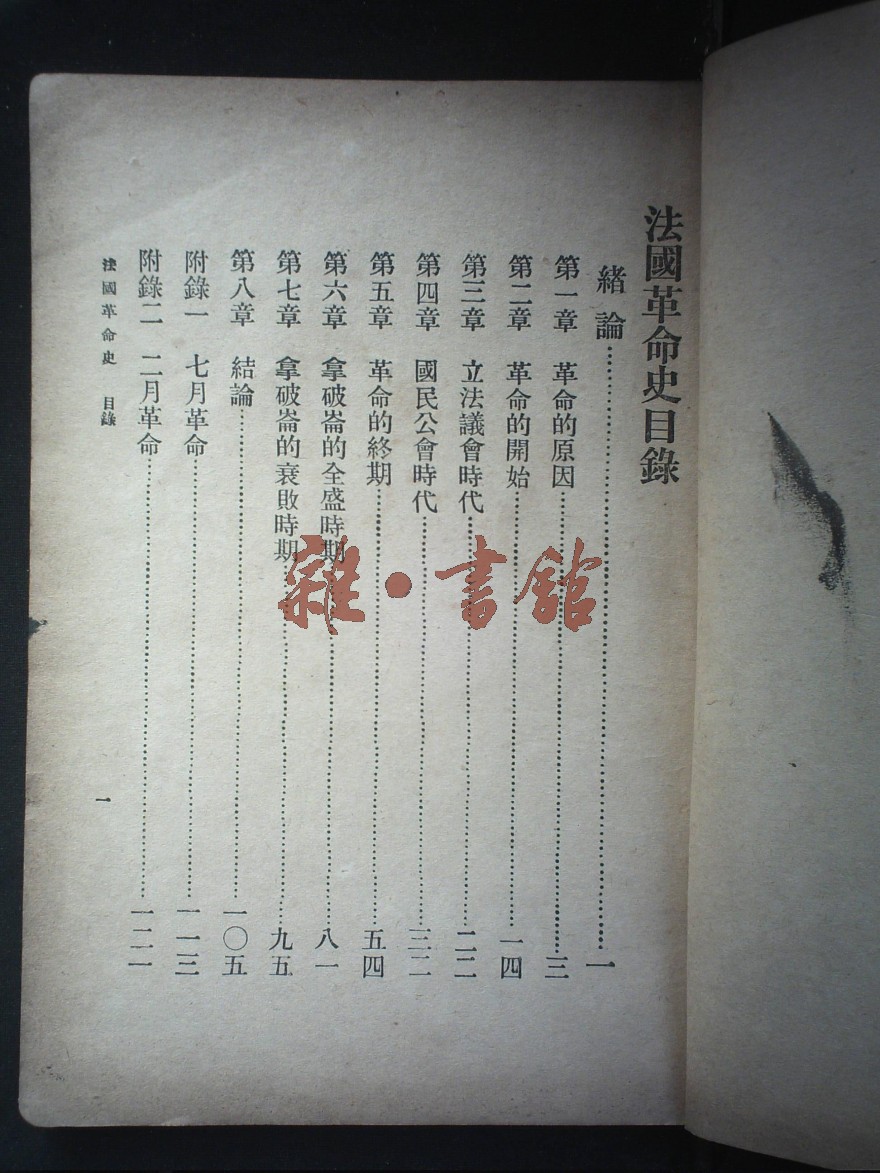 法國革命史目錄
緒論……………一
第一章　革命的原因……………三
第二章　革命的開始……………一四
第三章　立法議會時代……………二二
第四章　國民公會時代……………三二
第五章　革命的終期……………五四
第六章　拿破崙的全盛時期……………八一
第七章　拿破崙的衰敗時期……………九五
第八章　結論……………一〇五
附錄一　七月革命……………一一三
附錄二　二月革命……………一二一
法國革命史　目錄　一
雜·書館